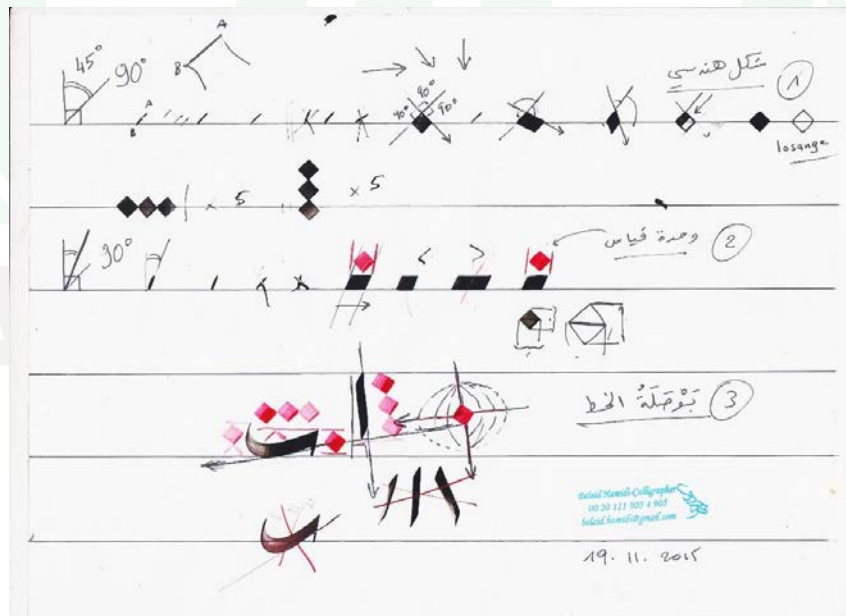 45°
90°
A
B
A
B
90°
90°
90°
شكل هندسي
1
losange
x 5
x 5
وحدة قياس
2
30°
بَوْصَلَةُ الخط
3
Belaid Hamidi-Calligrapher
00 20 111 905 4 905
belaid.hamidi@gmail.com
19. 11. 2015